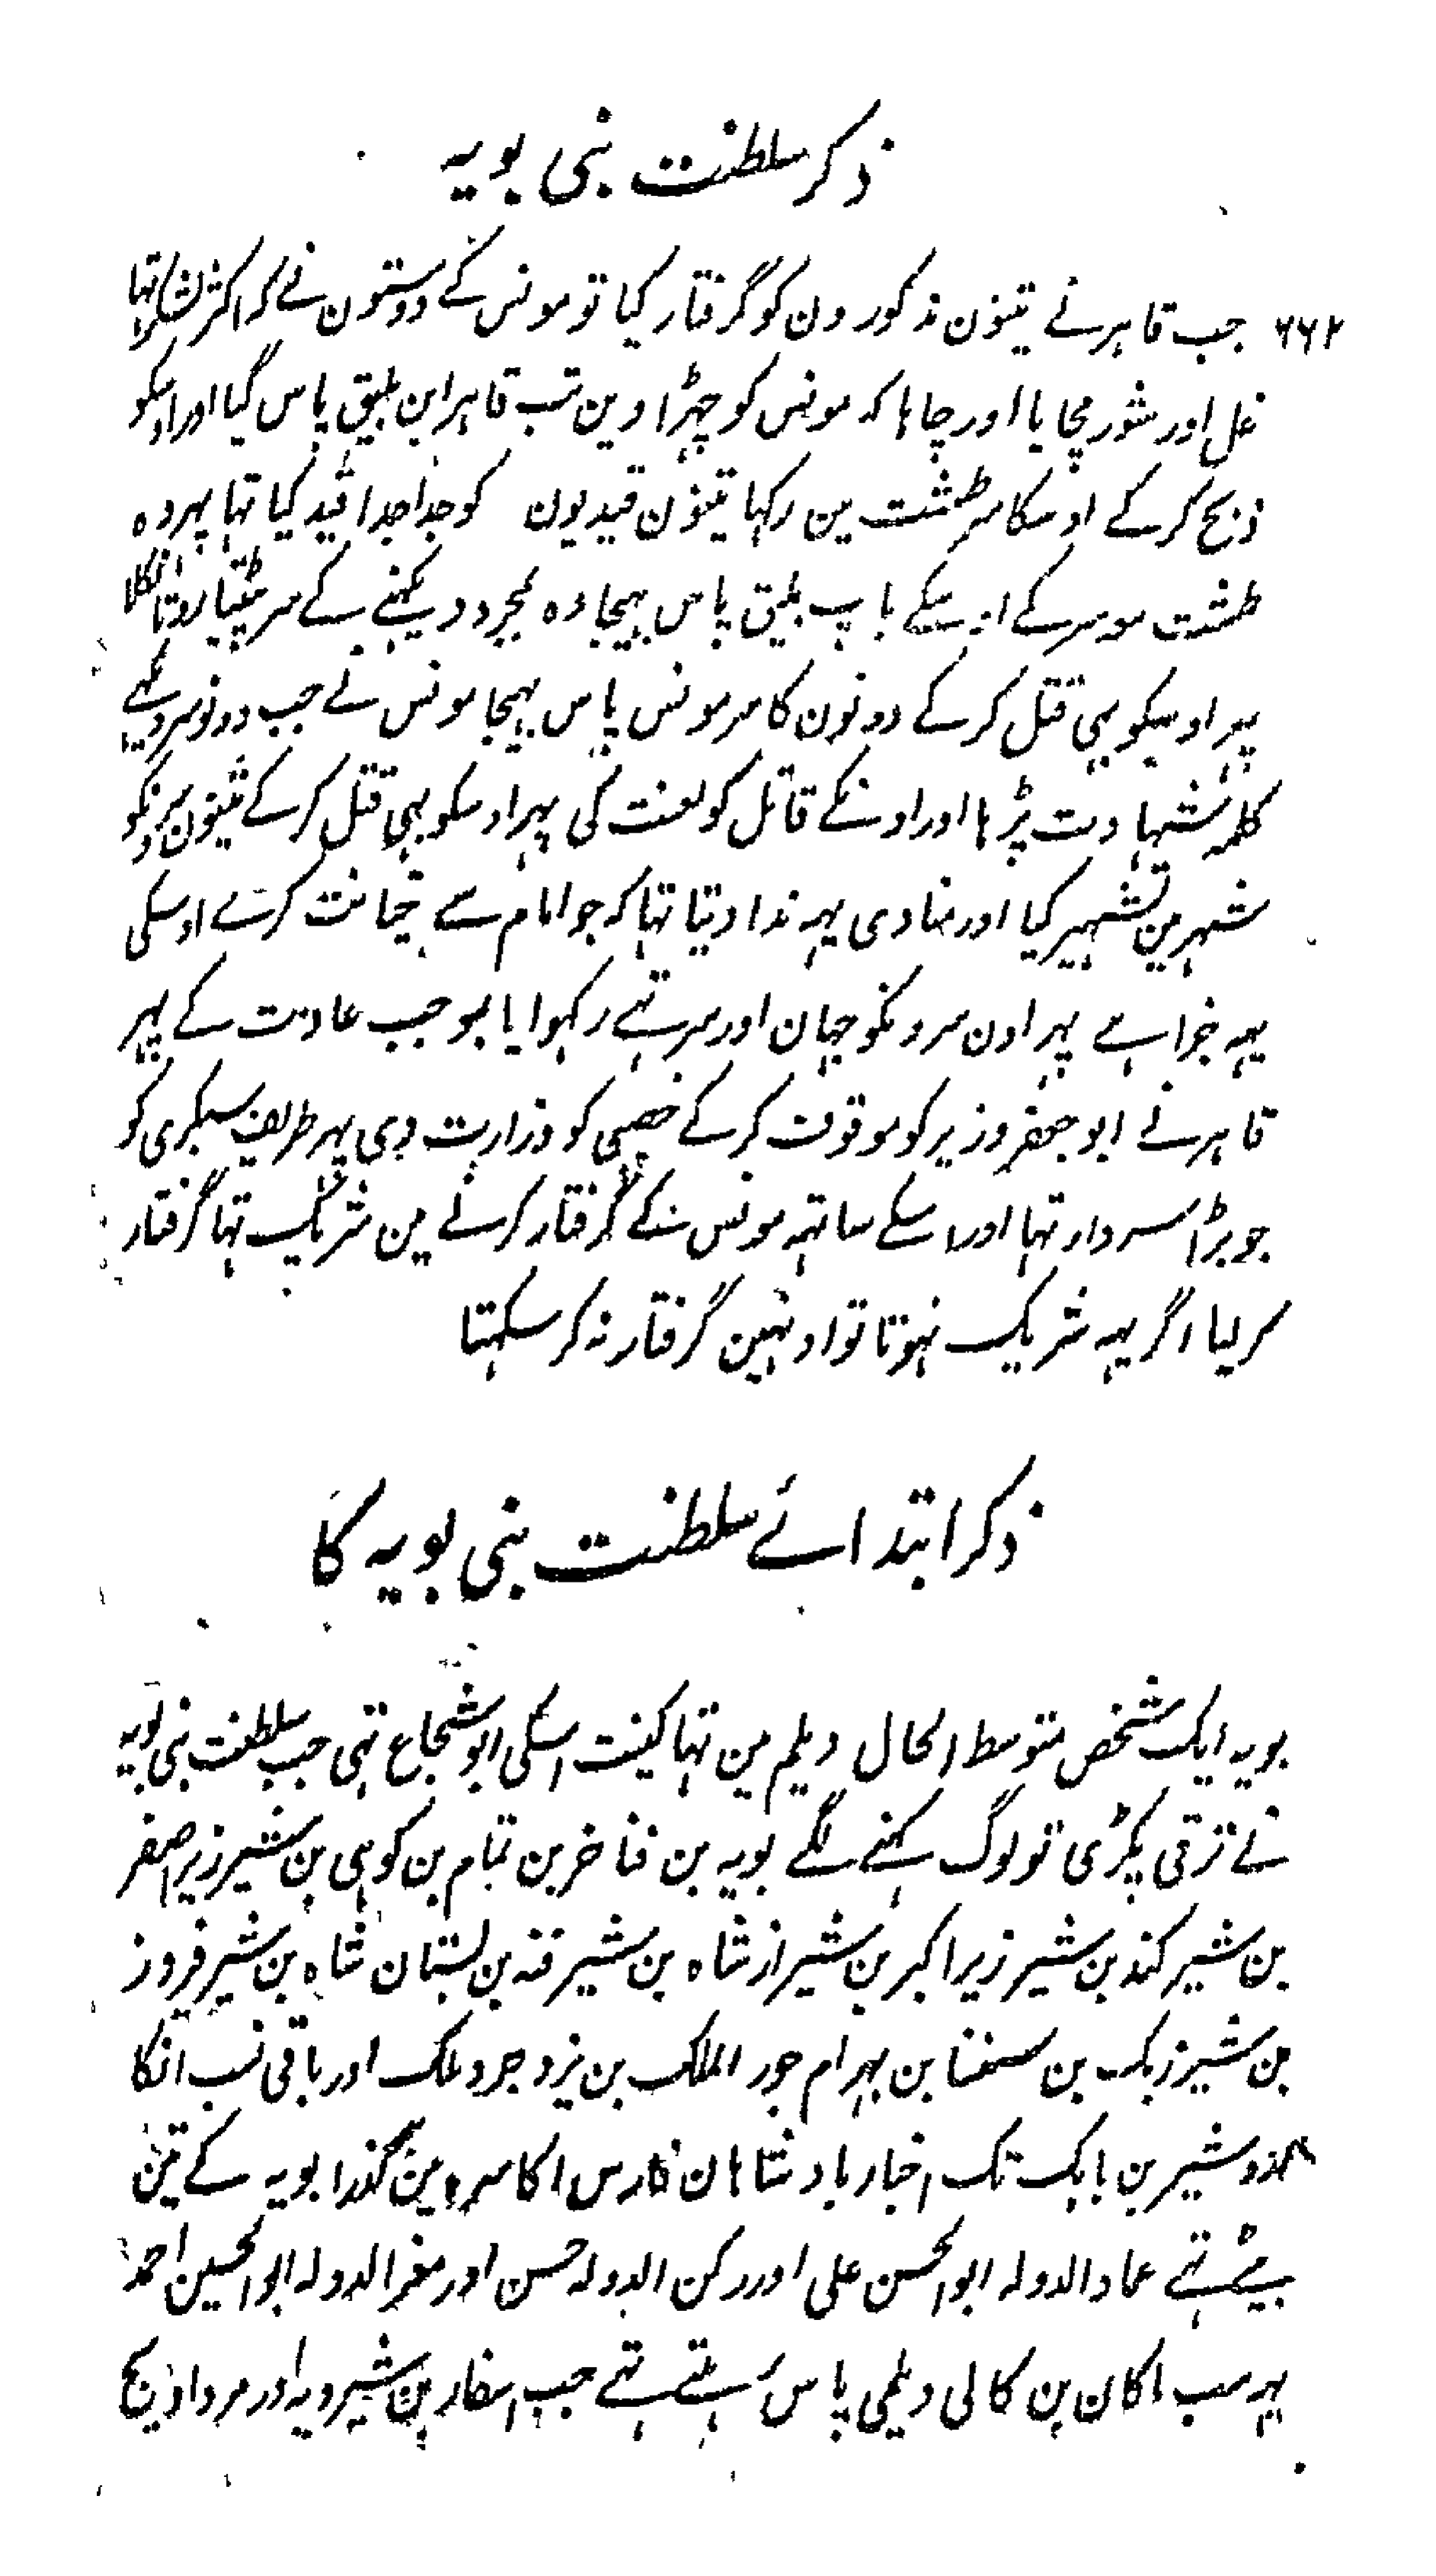 ذکر سلطنت بنی بویہ
۶۶۲ جب قاہرنے تینون مذکورون کو گرفتار کیا تو مونس کے دوستون نے کہ اکثر لشکر تہا
غل اور شور مچایا اور چاہا کہ مونس کو چہڑا وین تب قاہر ابن بلیق پاس گیا اور اوسکو
ذبح کر کے اوسکا سر طشت مین رکہا تینون قیدیون کو جدا جدا قید کیا تہا پہر وہ
طشت موسرکے اوسکے باپ بلیق پاس بہیجا وہ بمجرد دیکہنے کے سر پیٹتیا روتا نکلا
پہر اوسیکو بہی قتل کر کے دونون کا سر مونس پاس بہیجا مونس نے جب دونوسر دیکہے
کلمہ شہادت پڑہا اور اونکے قاتل کو لعنت کی پہر اوسکو بہی قتل کر کے تینون سرونکو
شہر مین تشہیر کیا اور منادی یہہ ندا دیتا تہا کہ جو امام سے خیانت کرے اوسکی
یہہ جزا ہے پہر اون سرونکو جہان اور سر تہے رکہوایا بموجب عادت کے پہر
قاہر نے ابو جعفر وزیر کو موقوف کر کے خصیبی کو وزارت دی پہر طریف سبکری کو
جو بڑا سردار تہا اور اسکے ساتہہ مونس کے گرفتار کرنے مین شریک تہا گرفتار
کر لیا اگر یہہ شریک نہوتا تو اونہین گرفتار نہ کر سکہتا
ذکر ابتدائے سلطنت بنی بویہ کا
بویہ ایک شخص متوسط الحال دیلم مین تہا کینت اسکی ابو شجاع تہی جب سلطنت بنی بویہ
نے ترقی پکڑی تو لوگ کہنے لگے بویہ بن فناخر بن تمام بن کوہی بن شیرزیر اصغر
بن شیر کند بن شیر زیر اکبر بن شیراز شاہ بن شیر فنہ بن بستان شاہ بن شیر فیروز
بن شیرزیک بن سنفنا بن بہرام جور الملک بن یزد جرد ملک اور باقی نسب انکا
شیر بن بابک تک اخبار بادشاہان فارس اکاسرہ مین گذرا بویہ کے تین
بیٹے تہے عماد الدولہ ابو الحسن علی اور رکن الدولہ حسن اور معز الدولہ ابو الحسین احمد
یہہ سب ماکان بن کالی دیلمی پاس رہتے تہے جب اسفار بن شیرویہ اور مرداویج